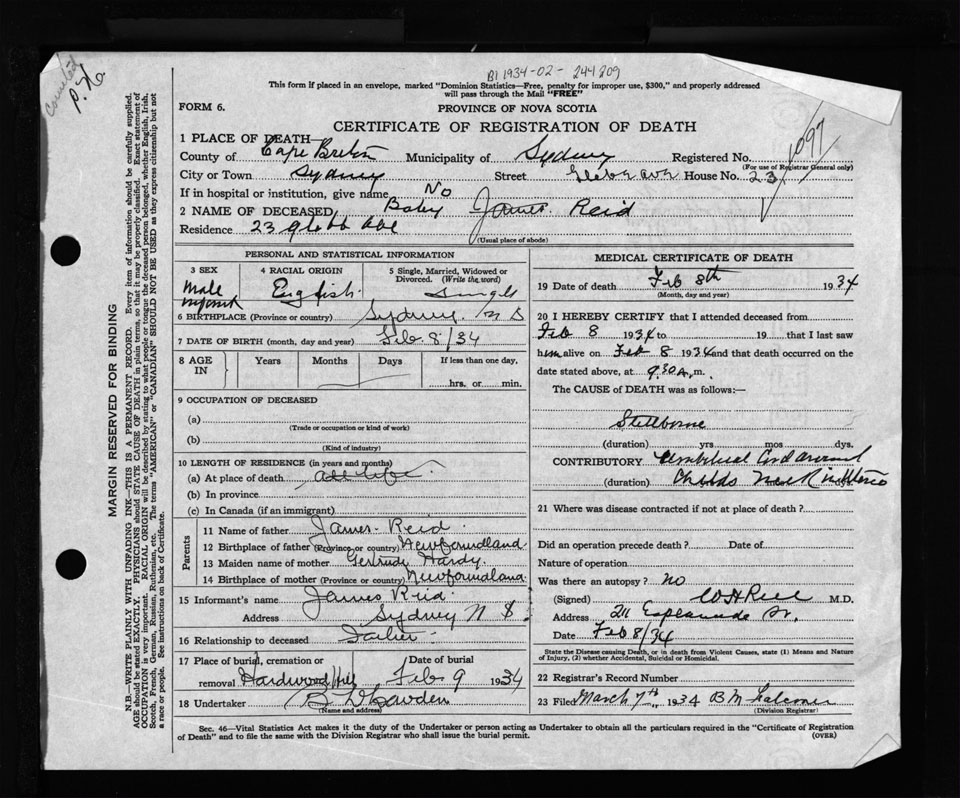 corrected
P. 76
B1 1934-02- 244809
This form if placed in an envelope, marked "Dominion Statistics—Free, penalty for improper use, $300," and properly addressed
will pass through the Mail "FREE"
FORM 6.
PROVINCE OF NOVA SCOTIA
CERTIFICATE OF REGISTRATION OF DEATH
1097
1 PLACE OF DEATH—
County of Cape Breton Municipality of Sydney Registered No.
(For use of Registrar General only)
City or Town Sydney Street Glebe Ave House No. 23
If in hospital or institution, give name No
2 NAME OF DECEASED Baby James Reid
Residence 23 Glebe Ave
(Usual place of abode)
PERSONAL AND STATISTICAL INFORMATION
3 SEX 4 RACIAL ORIGIN 5 Single, Married, Widowed or
Divorced. (Write the word)
Male English Single
6 BIRTHPLACE (Province or country) Sydney N S
7 DATE OF BIRTH (month, day and year) Feb 8/34
8 AGE IN Years Months Days If less than one day,
hrs. or min.
9 OCCUPATION OF DECEASED
(a)
(Trade or occupation or kind of work)
(b)
(Kind of industry)
10 LENGTH OF RESIDENCE (in years and months)
(a) At place of death all life
(b) In province
(c) In Canada (if an immigrant)
Parents
11 Name of father James Reid
12 Birthplace of father (Province or country) Newfoundland
13 Maiden name of mother Gertrude Hardy
14 Birthplace of mother (Province or country) Newfoundland
15 Informant's name James Reid
Address Sydney N S
16 Relationship to deceased Father
17 Place of burial, cremation or Date of burial
removal Hardwood Hill Feb 9 1934
18 Undertaker
(Name and address)
MEDICAL CERTIFICATE OF DEATH
19 Date of death Feb 8th 1934
(Month, day and year)
20 I HEREBY CERTIFY that I attended deceased from
Feb 8 1934 to 19 that I last saw
him alive on Feb 8 1934 and that death occurred on the
date stated above, at 9.30 A.m.
The CAUSE of DEATH was as follows:—
Stillborne
(duration) yrs mos dys.
CONTRIBUTORY Umbilical Cord around
(duration) Childs neck
21 Where was disease contracted if not at place of death?
Did an operation precede death? Date of
Nature of operation
Was there an autopsy? no
(Signed) M.D.
Address 211 Esplanade St.
Date Feb 8/34
State the Disease causing Death, or in death from Violent Causes, state (1) Means and Nature
of Injury, (2) whether Accidental, Suicidal or Homicidal.
22 Registrar's Record Number
23 Filed March 7th 1934
(Division Registrar)
Sec. 46—Vital Statistics Act makes it the duty of the Undertaker or person acting as Undertaker to obtain all the particulars required in the "Certificate of Registration
of Death" and to file the same with the Division Registrar who shall issue the burial permit.
(OVER)
MARGIN RESERVED FOR BINDING
N.B.—WRITE PLAINLY WITH UNFADING INK—THIS IS A PERMANENT RECORD. Every item of information should be carefully supplied.
AGE should be stated EXACTLY. PHYSICIANS should STATE CAUSE OF DEATH in plain terms, so that it may be properly classified. Exact statement of
OCCUPATION is very important. RACIAL ORIGIN will be described by stating to what people or tongue the deceased person belonged, whether English, Irish,
Scotch, French, German, Russian, Ruthenian, etc. The terms "AMERICAN" or "CANADIAN" SHOULD NOT BE USED as they express citizenship but not
a race or people. See instructions on back of Certificate.